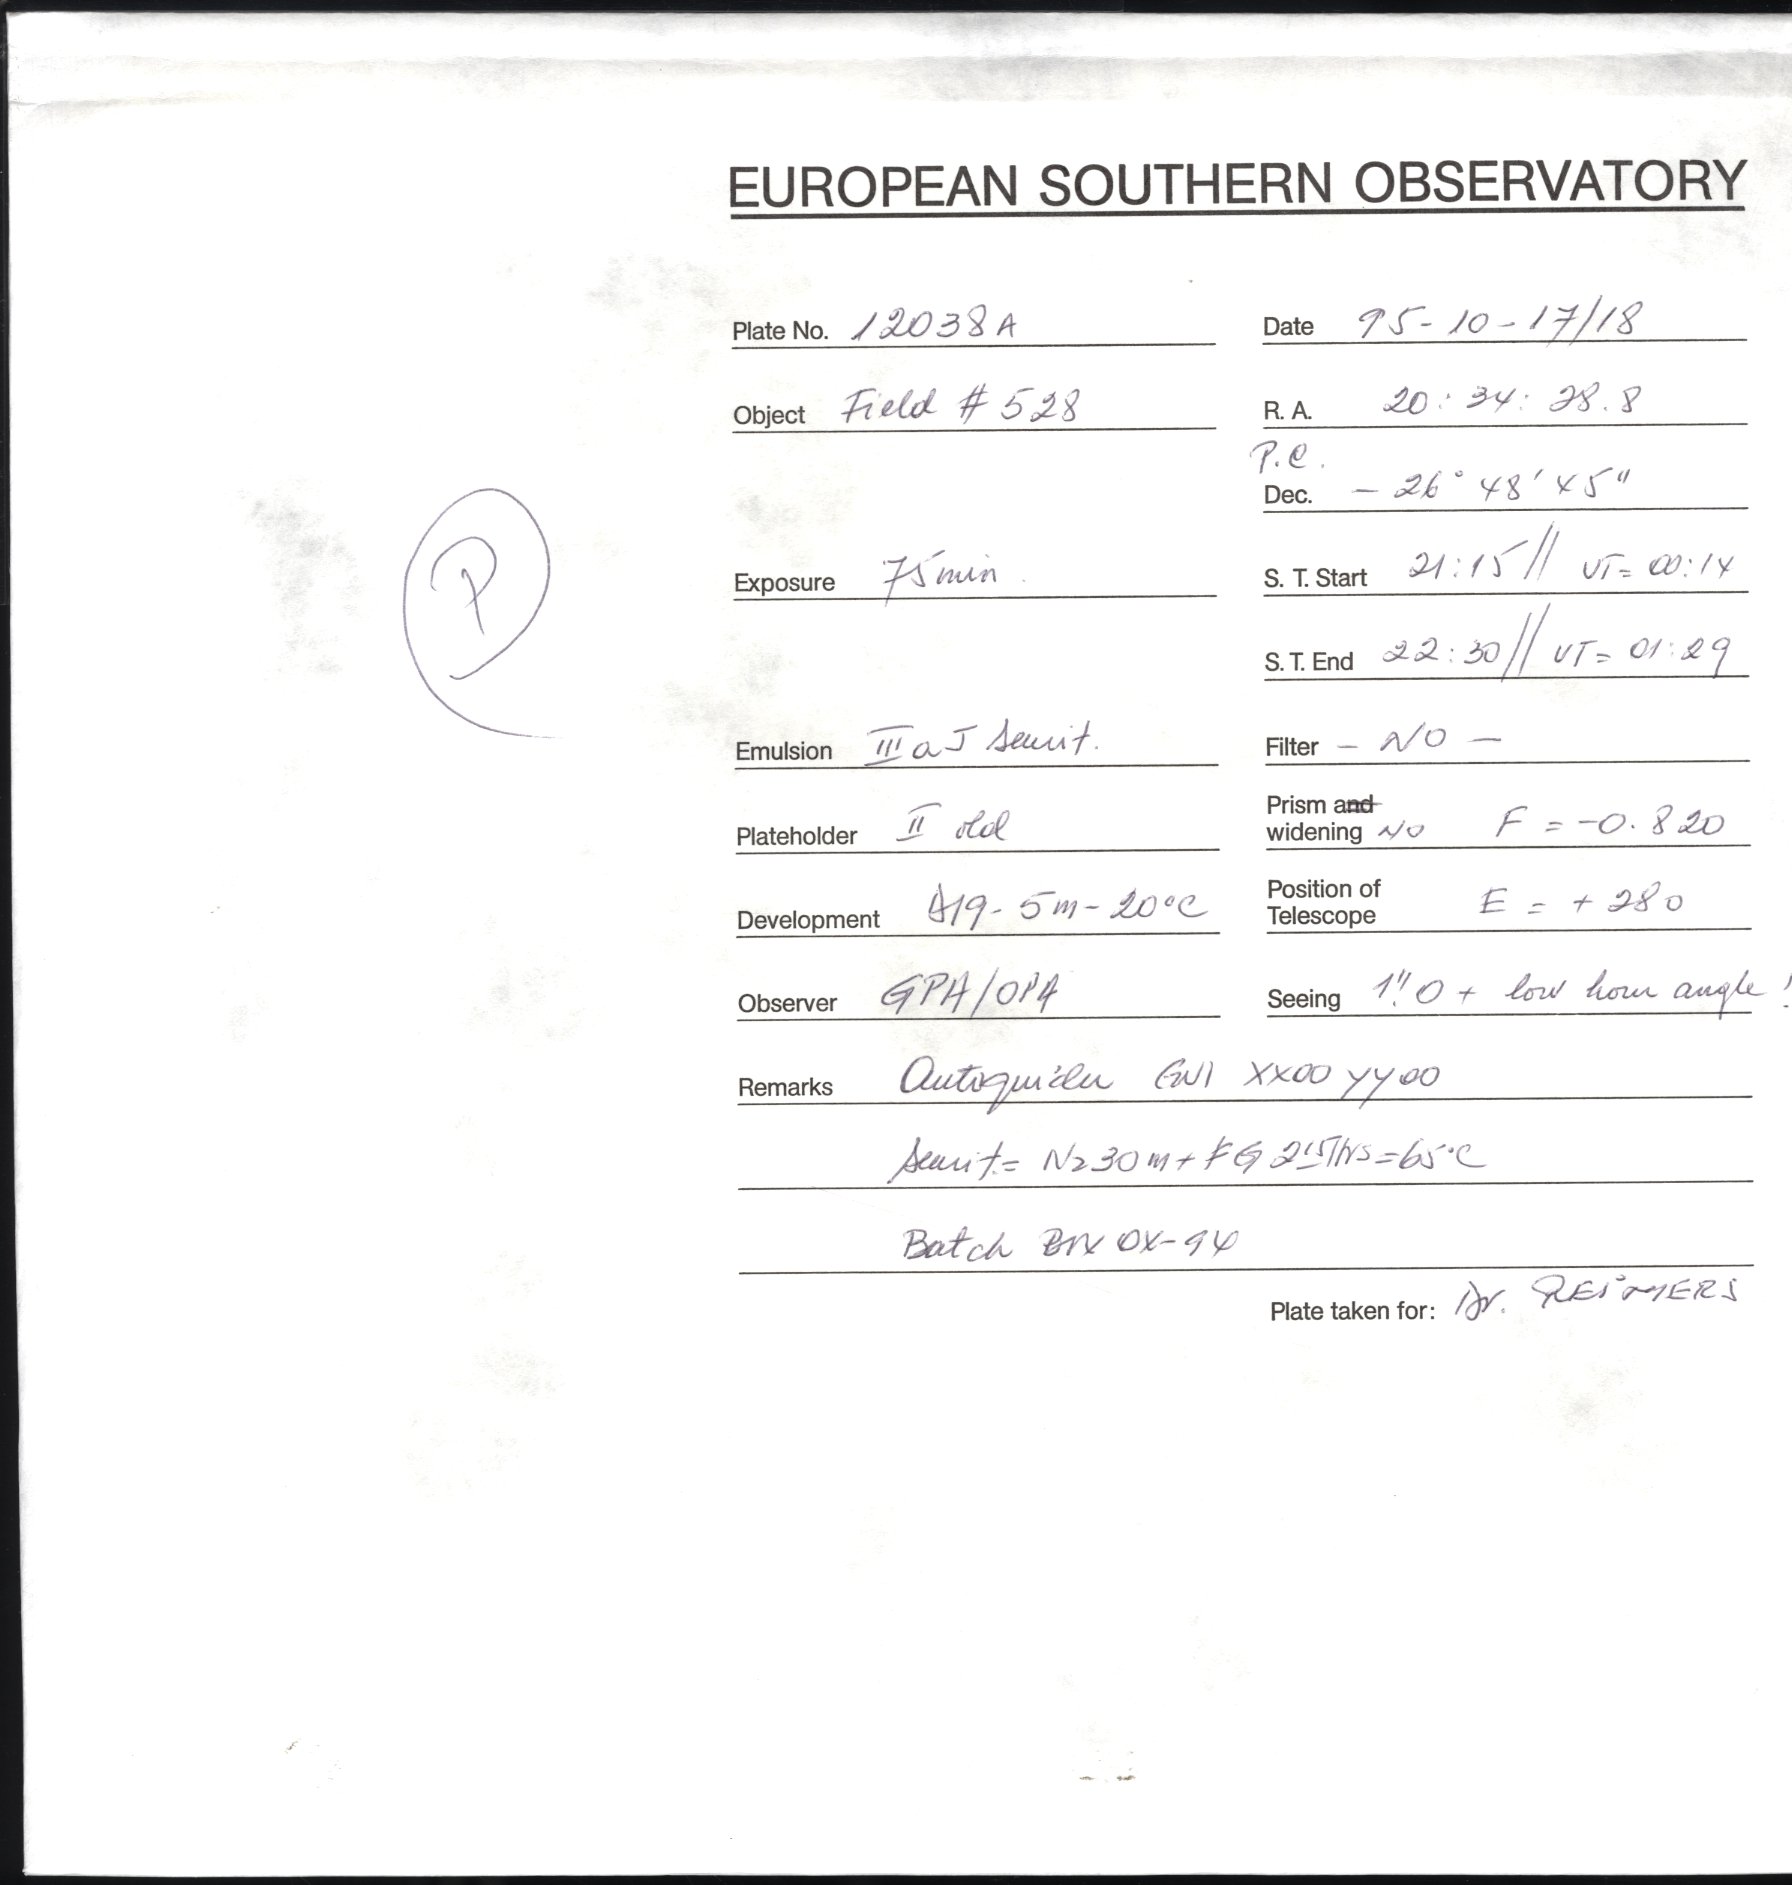 EUROPEAN SOUTHERN OBSERVATORY
Plate No. 12038A
Date 95-10-17/18
Object Field # 528
R. A. 20: 34: 28.8
P.C.
Dec. - 26° 48' 45"
P
Exposure 75min.
S. T. Start 21:15// UT= 00:14
S. T. End 22:30// UT= 01:29
Emulsion III a J sensit.
Filter - NO -
Plateholder II old
Prism and
widening NO F = -0.820
Development D19- 5m- 20°C
Position of
Telescope E = + 280
Observer GPA/OPA
Seeing 1".0 + low hour angle!
Remarks Autoguider XX00 YY00
Sensit.= N2 30m + FG =65°C
Batch 0X-94
Plate taken for: Dr. REIMERS